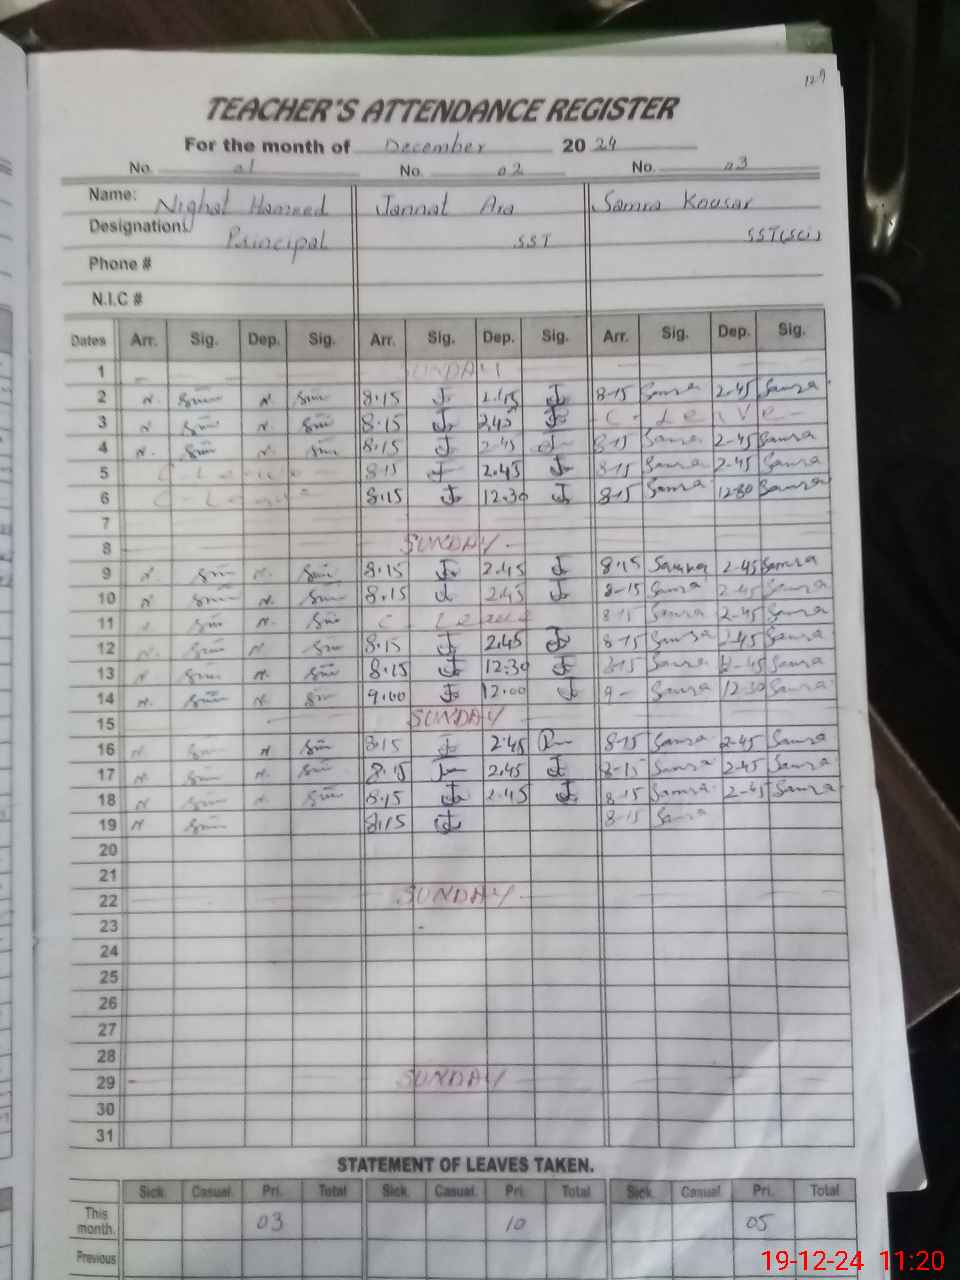 129
TEACHER'S ATTENDANCE REGISTER
For the month of December 2024
No. 01 No. 02 No. 03
Name: Nighat Hameed Jannat Ara Samra Kousar
Designation: Principal SST SST(Sci)
Phone #
N.I.C #
Dates Arr. Sig. Dep. Sig. Arr. Sig. Dep. Sig. Arr. Sig. Dep. Sig.
1 SUNDAY
2 N. N 8.15 J 2.45 J 8-15 Samra 2-45 Samra
3 N N 8.15 J 2.45 J C- Leave
4 N. N 8.15 J 2-45 J 8-15 Samra 2-45 Samra
5 C Leave 8.15 2.45 J 8-15 Samra 2-45 Samra
6 C-Leave 8.15 J 12.30 J 8-15 Samra 12-30 Samra
7
8 SUNDAY
9 N N. 8.15 J 2.45 J 8.15 Samra 2-45 Samra
10 N N. 8.15 J 2.45 J 8-15 Samra 2-45 Samra
11 N. C. Leave 8-15 Samra 2-45 Samra
12 N. N. 8.15 J 2.45 J 8-15 Samra 2-45 Samra
13 N N. 8.15 J 12.30 J 8-15 Samra 2-45 Samra
14 N. N. 9.00 J 12.00 J 9- Samra 12-30 Samra
15 SUNDAY
16 N N 8.15 J 2.45 8-15 Samra 2-45 Samra
17 N N. 8.15 2.45 J 8-15 Samra 2-45 Samra
18 N N 8.15 J 2.45 J 8-15 Samra 2-45 Samra
19 N 8.15 J 8-15 Samra
20
21
22 SUNDAY
23
24
25
26
27
28
29 SUNDAY
30
31
STATEMENT OF LEAVES TAKEN.
Sick. Casual. Pri. Total Sick. Casual. Pri. Total Sick. Casual. Pri. Total
This month. 03 10 05
Previous
19-12-24 11:20